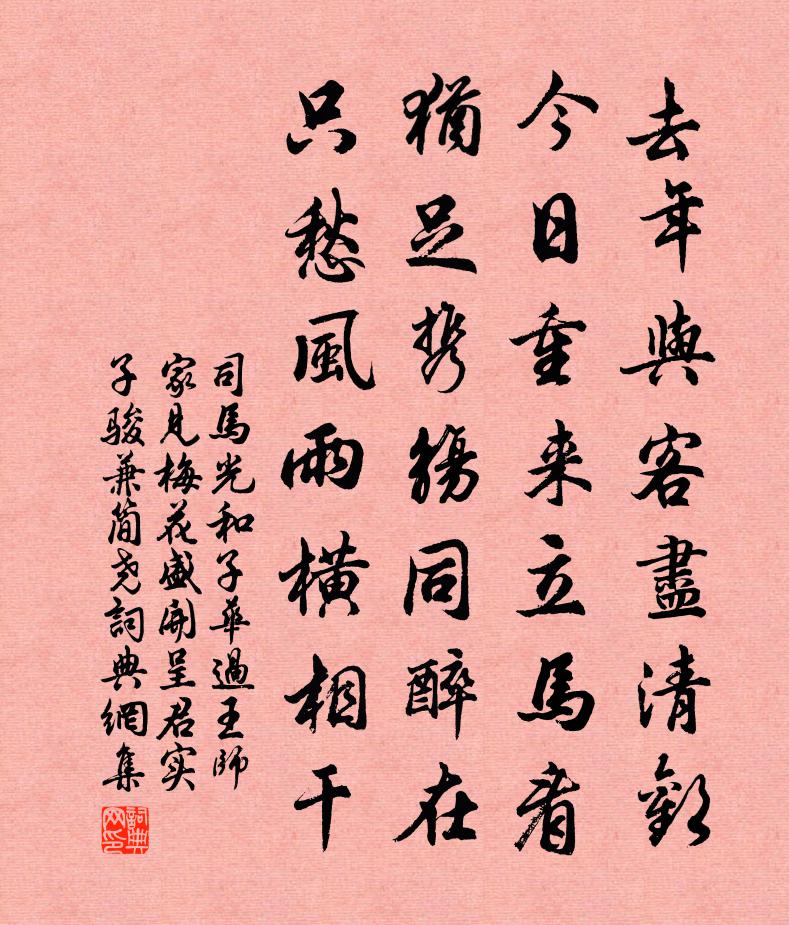 去年與客盡清歡
今日重来立馬看
猶足携觴同醉在
只愁風雨橫相干
司馬光和子華過王師
家見梅花盛開呈君实
子骏兼简尧詞典網集
詞典网印